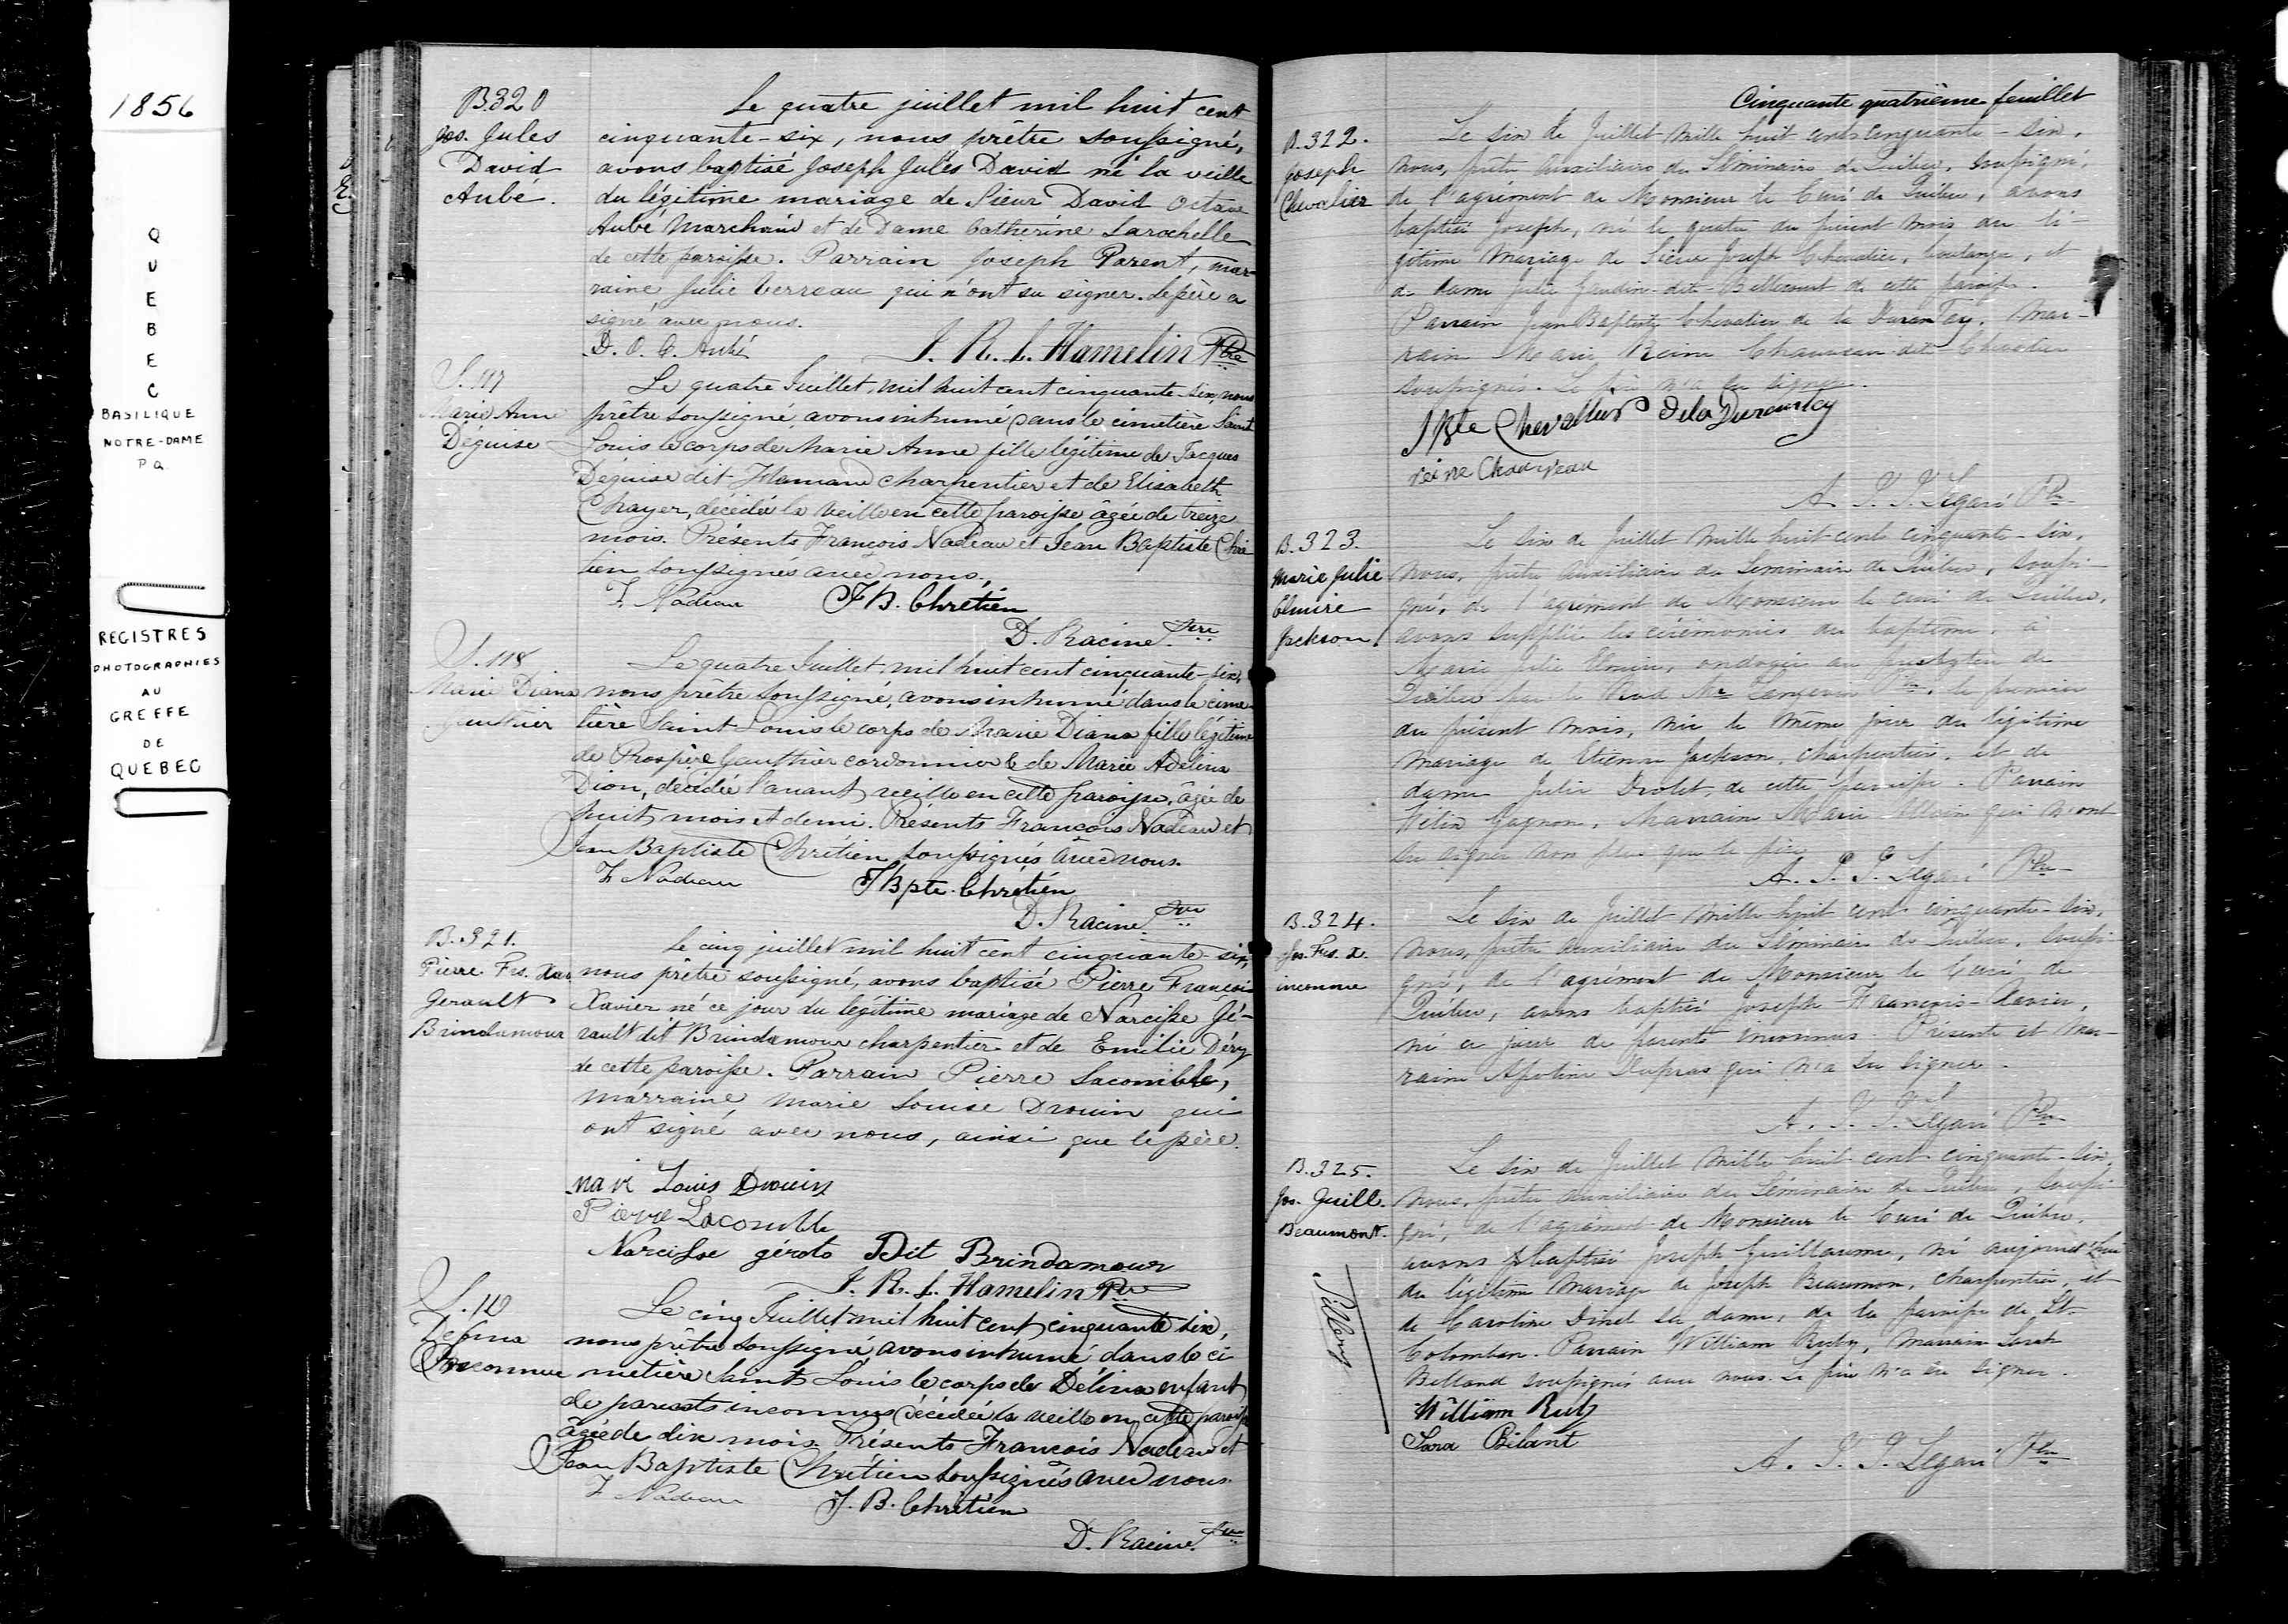 1856
QUEBEC
BASILIQUE
NOTRE-DAME
P.Q.
REGISTRES
PHOTOGRAPHIES
AU
GREFFE
DE
QUEBEC
B.320
Jos. Jules
David
Aubé.
Le quatre juillet mil huit cent
cinquante-six, nous prêtre soussigné,
avons baptisé Joseph Jules David né la veille
du légitime mariage de Sieur David Octave
Aubé Marchand et de Dame Catherine Larochelle
de cette paroisse. Parrain Joseph Parent, mar-
raine Julie Verreau qui n'ont su signer. le père a
signé avec nous.
D. O. C. Aubé
J. R. L. Hamelin Ptre
S. 117
Marie Anne
Déguise
Le quatre Juillet, mil huit cent cinquante-six, nous
prêtre soussigné, avons inhumé dans le cimetière Saint
Louis le corps de Marie Anne fille légitime de Jacques
Déguise dit Flamand charpentier et de Elisabeth
Chayer, décédée la veille en cette paroisse âgée de treize
mois. Présents François Nadeau et Jean Baptiste Chré
tien soussignés avec nous.
F Nadeau
J B. Chretien
D. Racine Ptre
S. 118
Marie Diana
Gauthier
Le quatre Juillet, mil huit cent cinquante-six,
nous prêtre soussigné, avons inhumé dans le cime
tière Saint Louis le corps de Marie Diana fille légitime
de Prospère Gauthier cordonnier & de Marie Adelina
Dion, décédée l'avant veille en cette paroisse, âgée de
huit mois et demi. Présents François Nadeau et
Jean Baptiste Chrétien soussignés avec nous.
F Nadeau
J Bpte. Chrétien
D. Racine Ptre
B. 321.
Pierre Frs. Xav
Gerault
Brindamour
Le cinq juillet mil huit cent cinquante-six,
nous prêtre soussigné, avons baptisé Pierre François
Xavier né ce jour du légitime mariage de Narcisse Gé-
rault dit Brindamour charpentier et de Emilie Déry
de cette paroisse. Parrain Pierre Lacomble,
marraine Marie Louise Drouin qui
ont signé avec nous, ainsi que le père.
Louis Drouin
Pierre Lacomble
Narcisse géroto Dit Brindamour
J. R. L. Hamelin Ptre
Délina
Inconnue
Le cinq Juillet mil huit cent cinquante six,
nous prêtre soussigné, avons inhumé dans le ci
metière Saint Louis le corps de Délina enfant
de parents inconnus décédée la veille en cette paroisse
âgée de dix mois. Présents François Nadeau et
Jean Baptiste Chrétien soussignés avec nous.
F Nadeau
J. B. Chrétien
D. Racine Ptre
Cinquante quatrième feuillet
B.322.
Joseph
Chevalier
Le six de Juillet mille huit cents cinquante-six,
nous, prêtre auxiliaire du Séminaire de Québec, soussigné,
de l'agrément de Monsieur le Curé de Québec, avons
baptisé Joseph, né le quatre du présent mois du lé-
gitime mariage de Sieur Joseph Chevalier, boulanger, et
de dame Julie Gaudin-dit-Bellecourt de cette paroisse.
Parrain Jean Baptiste Chevalier de la Durantay. Mar-
raine Marie Reine Chauveau dit Chevalier
soussignés. Le père n'a su signer.
J Bte Chevallier dela Durantey
reine Chauveau
A. P. P. Légaré Ptre
B.323.
Marie Julie
Elmire
Jackson.
Le six de Juillet mille huit cents cinquante-six,
nous, prêtre auxiliaire du Séminaire de Québec, soussi-
gné, de l'agrément de Monsieur le curé de Québec,
avons supplée les cérémonies du baptême à
Marie Julie Elmire, ondoyée au presbytère de
Québec par le Revd Mr Langevin Ptre, le premier
du présent mois, née le même jour du légitime
mariage de Etienne Jackson, charpentier, et de
dame Julie Drolet, de cette paroisse. Parrain
Félix Gagnon, Marraine Marie Allain qui n'ont
su signer non plus que le père
A. P. P. Légaré Ptre
B.324.
Jos. Frs. X.
inconnu
Le six de Juillet mille huit cent cinquante-six,
nous, prêtre auxiliaire du Séminaire de Québec, soussi-
gné, de l'agrément de Monsieur le Curé de
Québec, avons baptisé Joseph-François-Xavier,
né ce jour de parents inconnus. Présente et mar-
raine Apoline Dupras qui n'a su signer.
A. P. P. Légaré Ptre
B.325.
Jos. Guill.
Beaumont.
Sillery
Le six de Juillet mille huit cent cinquante-six,
nous, prêtre auxiliaire du Séminaire de Québec, soussi-
gné, de l'agrément de Monsieur le Curé de Québec,
avons baptisé Joseph Guillaume, né aujourd'hui
du légitime mariage de Joseph Beaumon, charpentier, et
de Caroline Dinel sa dame, de la paroisse de St
Colomban. Parrain William Ruby, Marraine Sarah
Belland soussignés avec nous. Le père n'a su signer.
William Ruby
Sara Bilant
A. P. P. Légaré Ptre